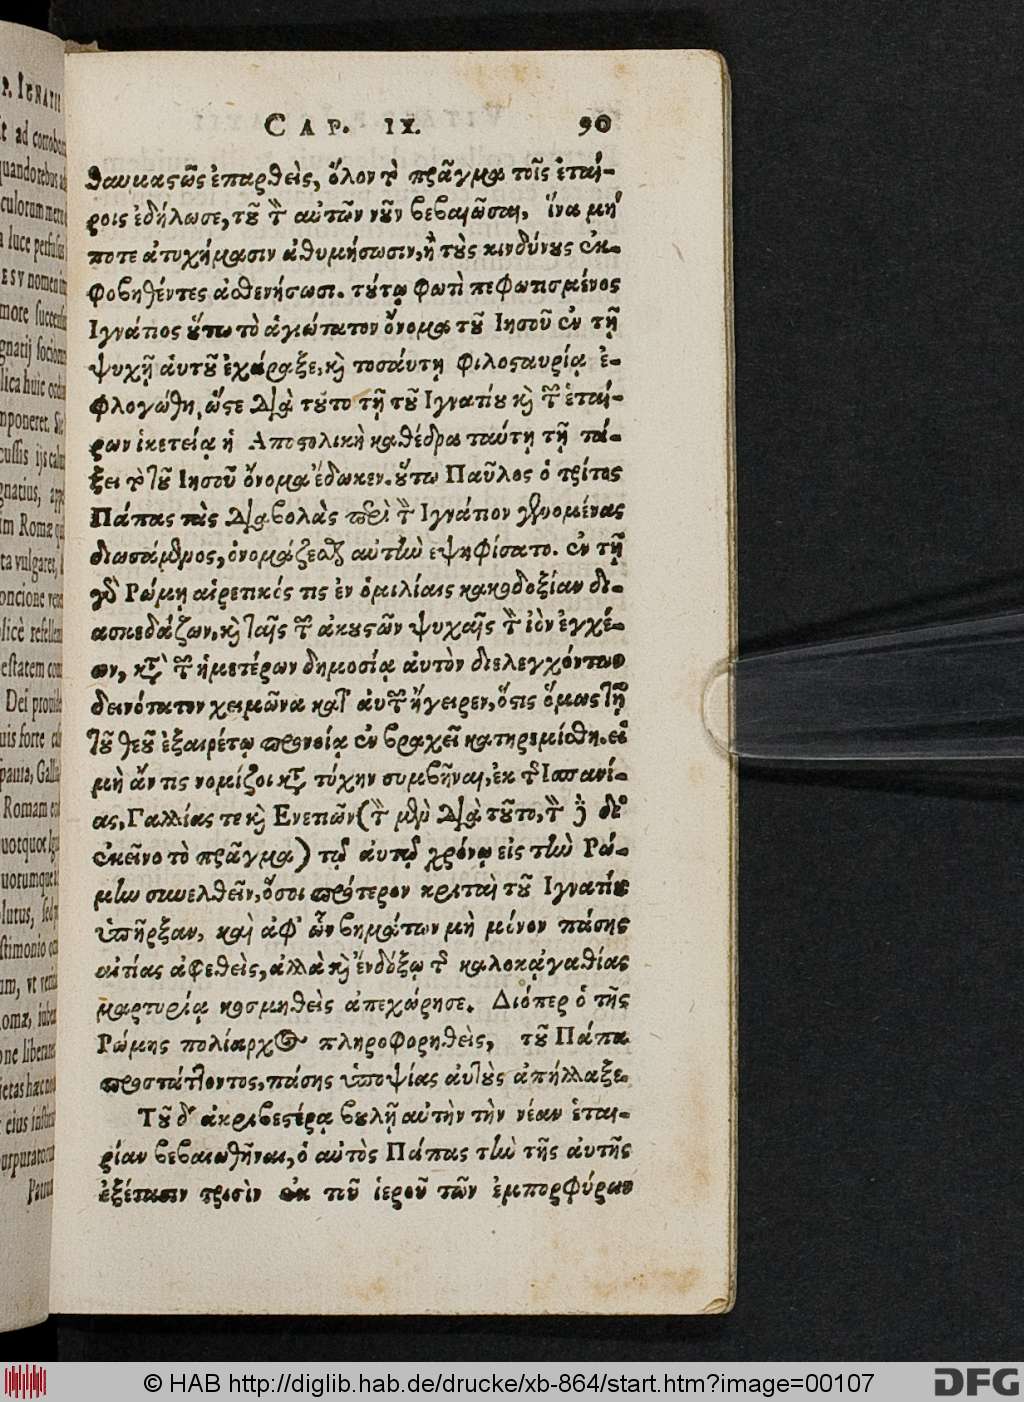 P. IGNATII
CAP. IX. 90
θαυμαςῶς ἐπαρθεὶς, ὅλον τὸ πρᾶγμα τοῖς ἑταί-
ροις ἐδήλωσε, τοῦ τὸν αὐτῶν νοῦν βεβαιῶσαι, ἵνα μή
ποτε ἀτυχήμασιν ἀθυμήσωσιν, ἢ τοὺς κινδύνους ἐκ-
φοβηθέντες ἀσθενήσωσι. τούτῳ φωτὶ πεφωτισμένος
Ιγνάτιος οὕτω τὸ ἁγιώτατον ὄνομα τοῦ Ιησοῦ ἐν τῇ
ψυχῇ ἁυτοῦ ἐχάραξε, καὶ τοσάυτῃ φιλοσταυρίᾳ ἐ-
φλογώθη, ὥστε διὰ τοῦτο τῇ τοῦ Ιγνατίου καὶ τῶν ἑταί-
ρων ἱκετείᾳ ἡ Αποστολικὴ καθέδρα ταύτῃ τῇ τά-
ξει τὸ τοῦ Ιησοῦ ὄνομα ἔδωκεν. οὕτω Παῦλος ὁ τρίτος
Πάπας τὰς διαβολὰς περὶ τὸν Ιγνάτιον γενομένας
διωσάμενος, ὀνομάζεσθαι αὐτὴν εψηφίσατο. ἐν τῇ
γὰρ Ρώμῃ αἱρετικός τις ἐν ὁμιλίαις κακοδοξίαν δι-
ασκεδάζων, καὶ ταῖς τῶν ἀκουστῶν ψυχαῖς τὸν ἰὸν ἐγχέ-
ων, κατὰ τῶν ἡμετέρων δημοσίᾳ ἀυτὸν διελεγχόντων
δεινότατον χειμῶνα κατ' ἀυτῶν ἤγειρεν, ὅστις ὅμως τῇ
τοῦ θεοῦ ἐξαιρέτῳ προνοίᾳ ἐν βραχεῖ κατηρεμίσθη. εἰ
μὴ ἄν τις νομίζοι κατὰ τύχην συμβῆναι, ἐκ τῆς Ισπανί-
ας, Γαλλίας τε καὶ Ενετῶν (τὸν μὲν διὰ τοῦτο, τὸν δὲ δι'
ἐκεῖνο τὸ πρᾶγμα) τῷ ἀυτῷ χρόνῳ εἰς τὴν Ρώ-
μην συνελθεῖν, ὅσοι πρότερον κριταὶ τοῦ Ιγνατίου
ὑπῆρξαν, καὶ ἀφ' ὧν βημάτων μὴ μόνον πάσης
αἰτίας ἀφεθεὶς, ἀλλὰ καὶ ἐνδόξῳ τῆς καλοκἀγαθίας
μαρτυρίᾳ κοσμηθεὶς ἀπεχώρησε. Διόπερ ὁ τῆς
Ρώμης πολίαρχος πληροφορηθεὶς, τοῦ Πάπα
προστάττοντος, πάσης ὑποψίας ἀυτοὺς ἀπήλλαξε.
Τοῦ δ' ἀκριβεστέρᾳ βουλῇ αὐτὴν τὴν νέαν ἑται-
ρίαν βεβαιωθῆναι, ὁ αὐτὸς Πάπας τὴν τῆς ἀυτῆς
ἐξέτασιν τρισὶν ἐκ τοῦ ἱεροῦ τῶν ἐμπορφύρων
© HAB http://diglib.hab.de/drucke/xb-864/start.htm?image=00107
DFG